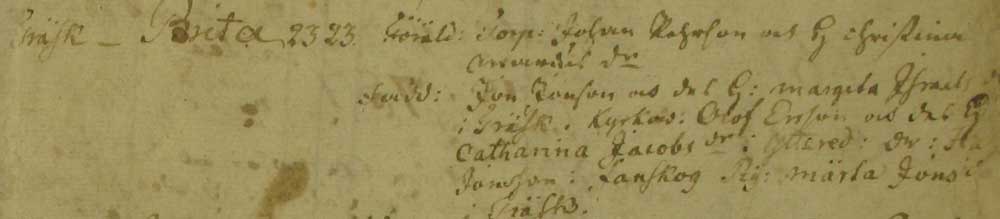 Träsk – Brita 23 23. Föräld: Torp: Johan Pehrson och H Christina
dr
Fadd: Jon Jonson och des H: Margeta Israels
i Träsk. Kyrkov: Olof Erson och des H
Catharina Jacobs dr i Yttered: dr:
Jonsson: Lanskog Pig: Märta Jons
i Träsk.